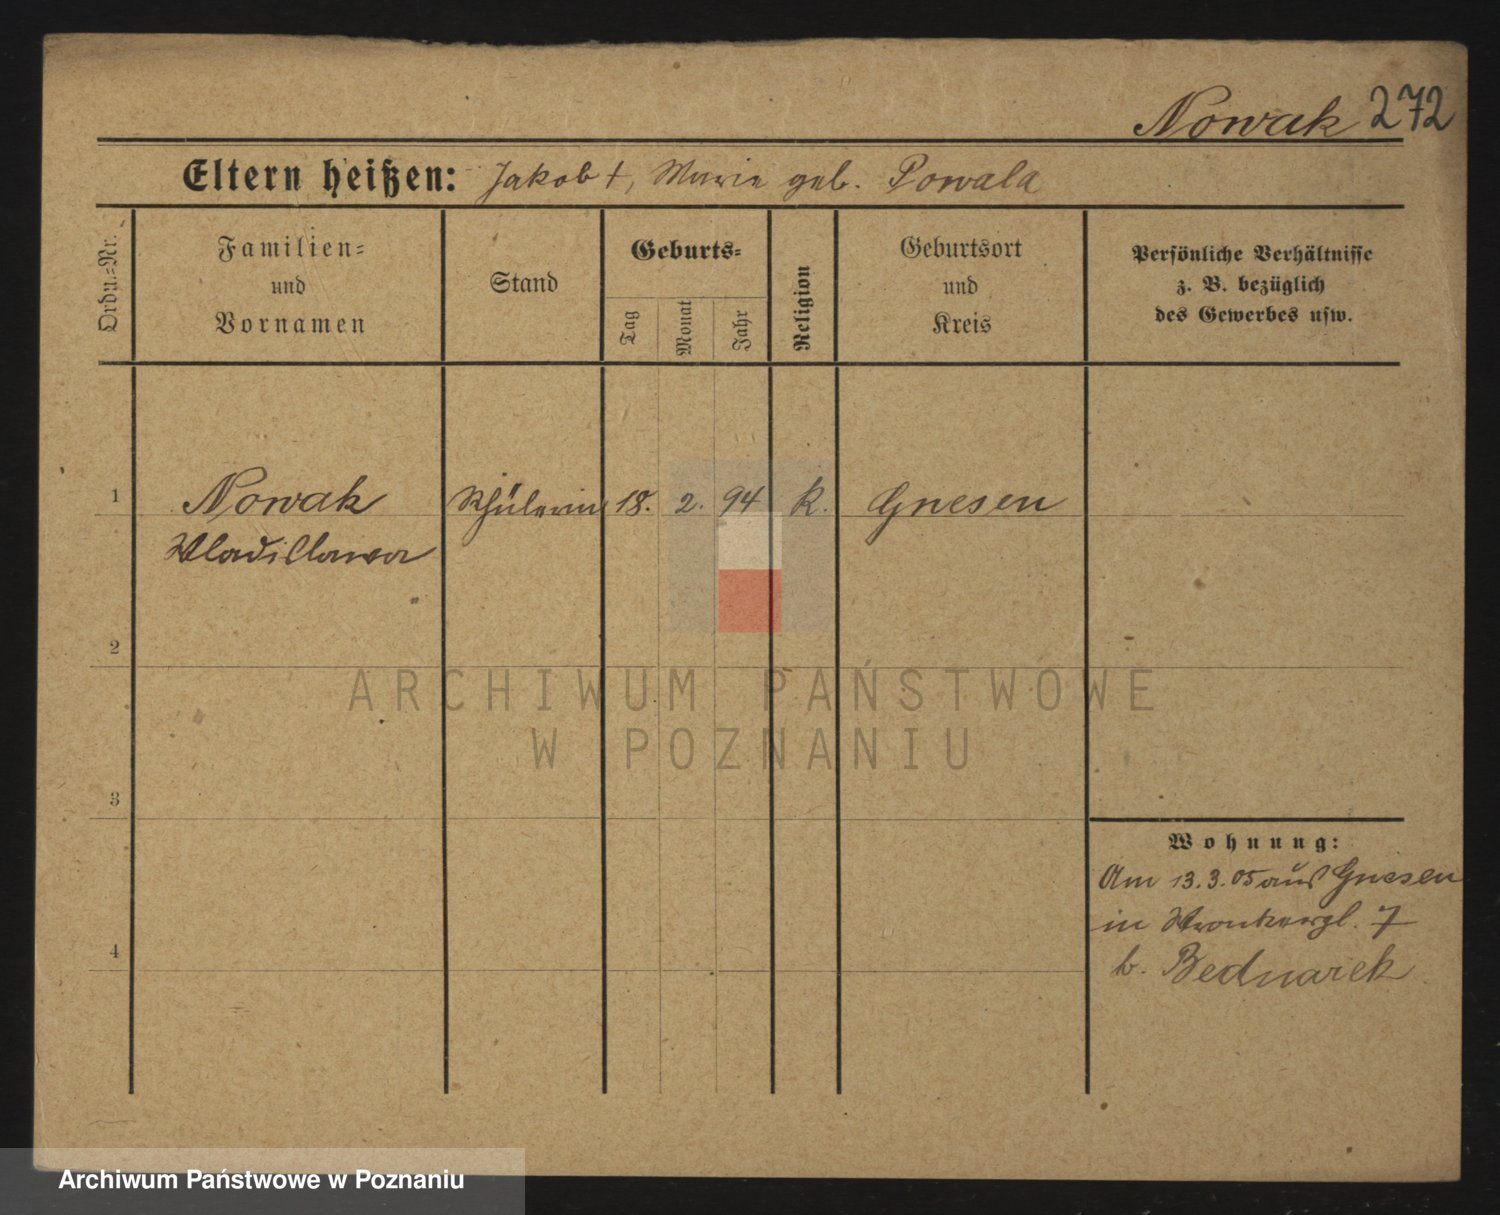 Nowak 272
Eltern heißen: Jakob †, Marie geb. Powala
Ordn.-Nr.
Familien-
und
Vornamen
Stand
Geburts-
Tag
Monat
Jahr
Religion
Geburtsort
und
Kreis
Persönliche Verhältnisse
z. B. bezüglich
des Gewerbes usw.
1 Nowak Schülerin 18. 2. 94 k. Gnesen
Wladislawa
2
ARCHIWUM PAŃSTWOWE
W POZNANIU
3
Wohnung:
Am 13.3.05 aus Gnesen
in Wronkergl. 7
4
b. Bednarek
Archiwum Państwowe w Poznaniu